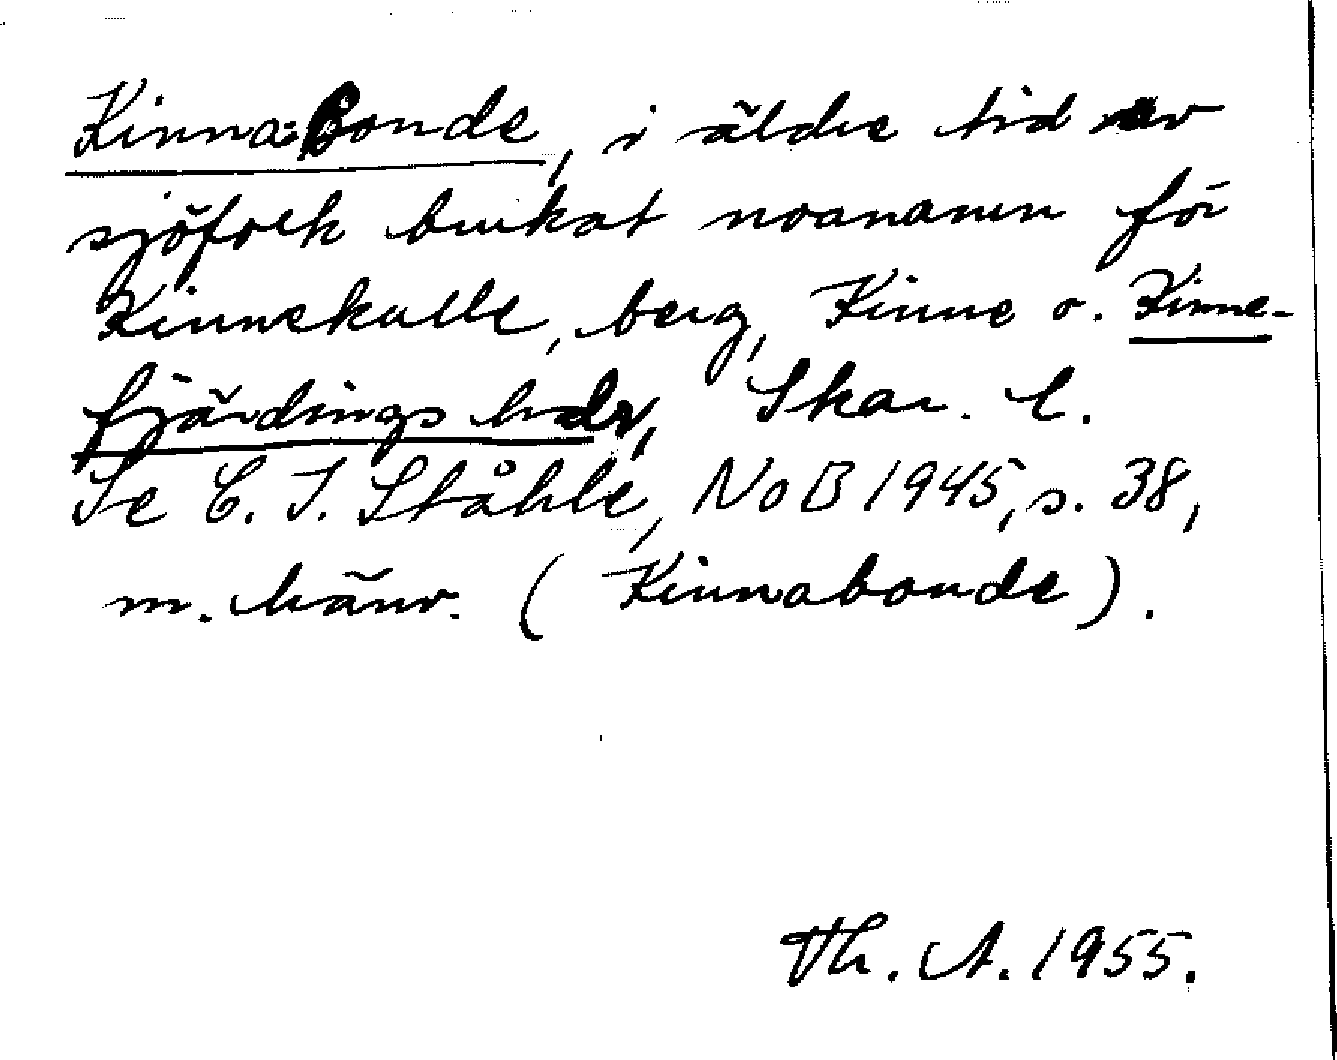 Kinna Bonde, i äldre tid av
sjöfolk brukat noanamn för
Kinnekulle, berg, Kinne o. Kinne-
fjärdings hdr, Skar. l.
Se C. I. Ståhle, NoB 1945, s. 38,
m. hänv. (Kinnabonde).
Th. A. 1955.